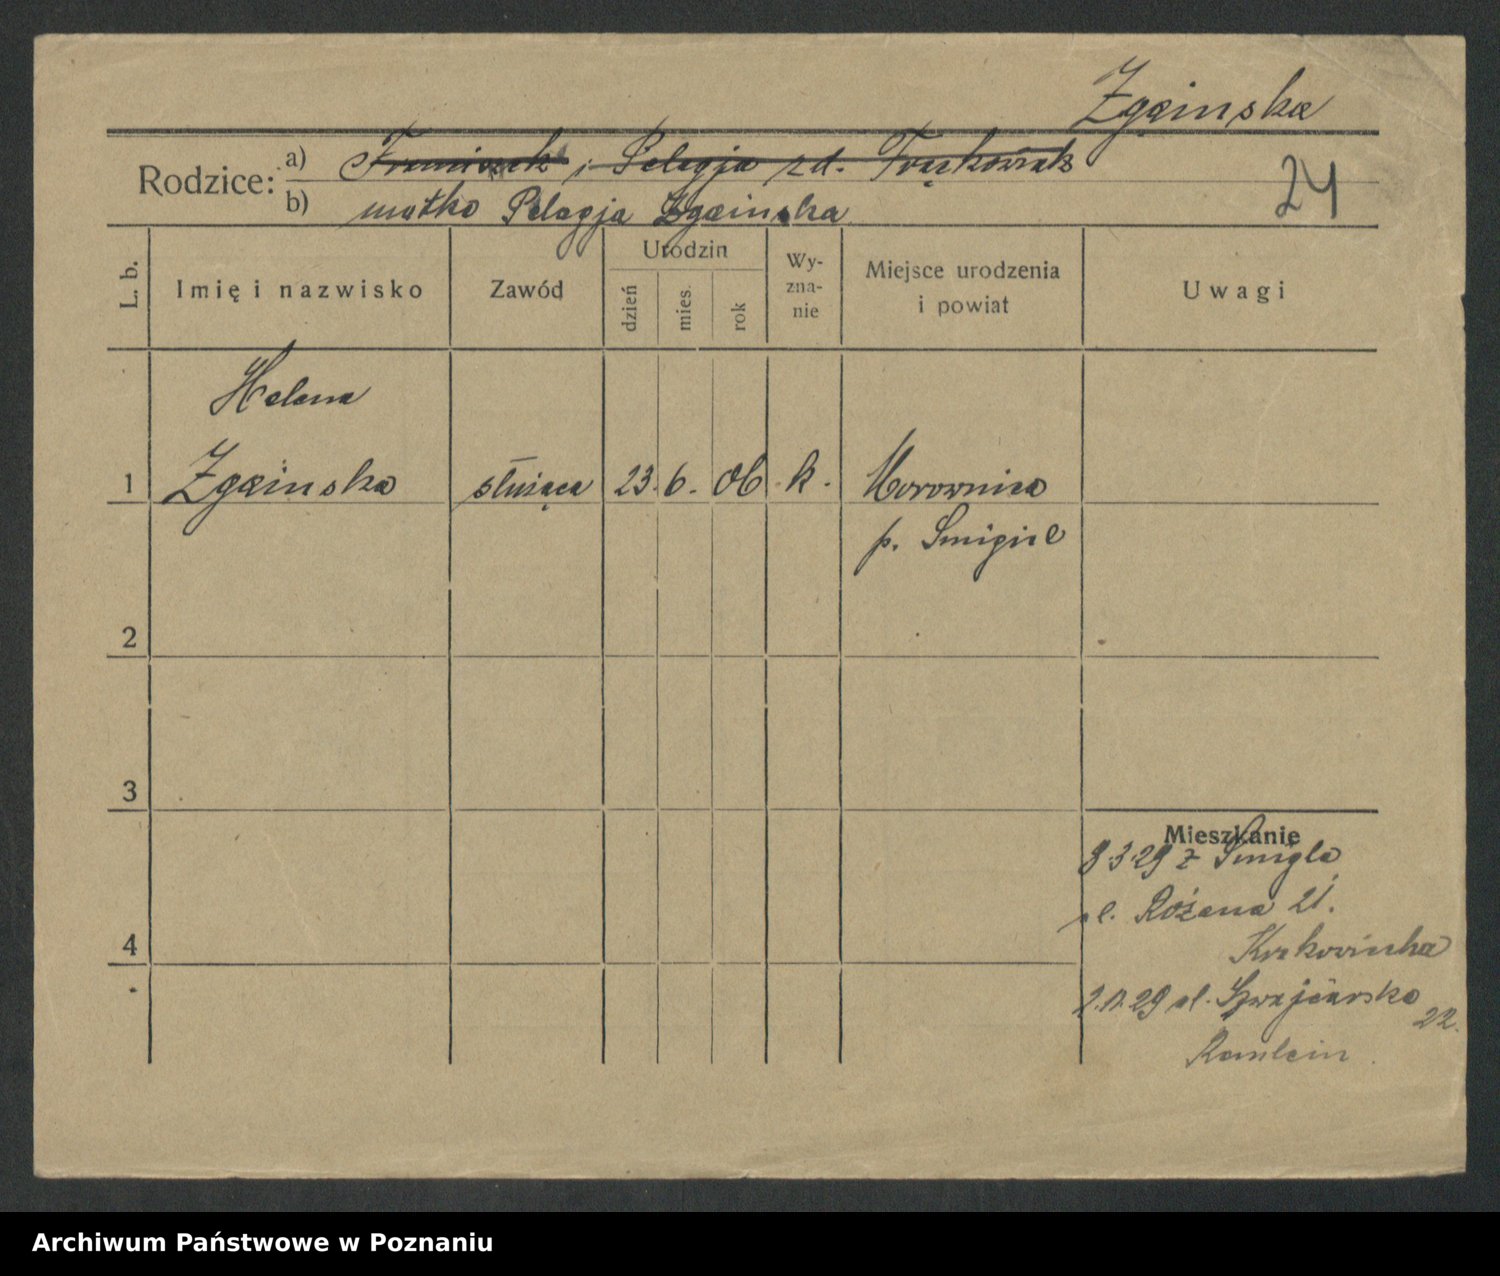 Zgainska
Rodzice: a) Franciszek i Pelagja z d. Frąckowiak
24
b) matka Pelagja Zgainska
L. b. Imię i nazwisko Zawód Urodzin dzień mies. rok Wy-zna-nie Miejsce urodzenia i powiat Uwagi
Helena
1 Zgainska służąca 23. 6. 06 k. Morownica
p. Smigiel
2
3
Mieszkanie
8.3.29 z Smigla
ul. Różana 21.
4
2.12.29 ul. Szwajcarska
22.
Archiwum Państwowe w Poznaniu